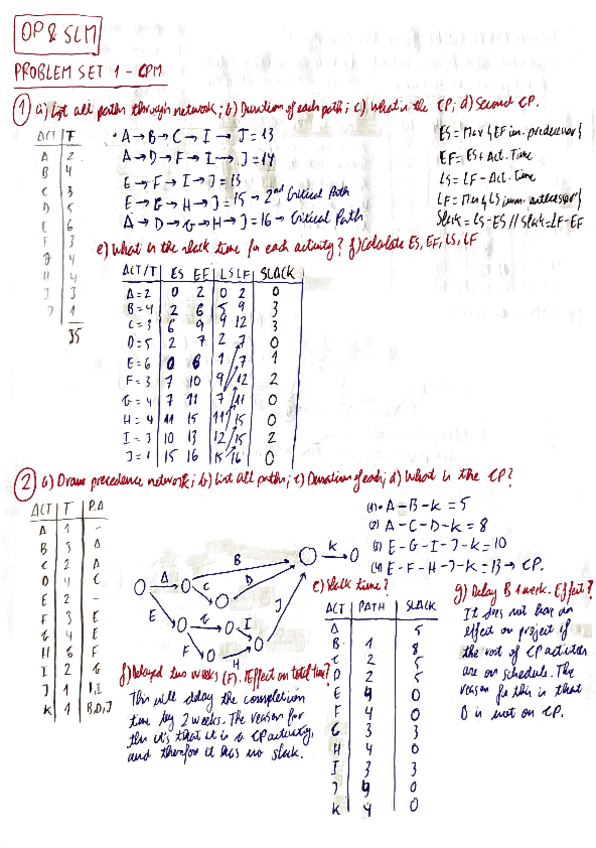 OP & SLM
PROBLEM SET 1 - CPM
1 a) List all paths through network; b) Duration of each path; c) What is the CP; d) Second CP.
ACT T
A 2
B 4
C 3
D 5
E 6
F 3
G 4
H 4
I 3
J 1
35
• A → B → C → I → J = 13
A → D → F → I → J = 14
E → F → I → J = 13
E → G → H → J = 15 → 2nd Critical Path
A → D → G → H → J = 16 → Critical Path
ES = Max { EF im. predecessor }
EF = ES + Act. Time
LS = LF - Act. Time
LF = Min { LS imm. successor }
Slack = LS - ES // Slack = LF - EF
e) What is the slack time for each activity? f) Calculate ES, EF, LS, LF
ACT/T ES EF LS LF SLACK
A = 2 0 2 0 2 0
B = 4 2 6 5 9 3
C = 3 6 9 9 12 3
D = 5 2 7 2 7 0
E = 6 0 6 1 7 1
F = 3 7 10 9 12 2
G = 4 7 11 7 11 0
H = 4 11 15 11 15 0
I = 3 10 13 12 15 2
J = 1 15 16 15 16 0
2 a) Draw precedence network; b) List all paths; c) Duration of each; d) What is the CP?
ACT T P.A
A 1 -
B 3 A
C 2 A
D 4 C
E 2 -
F 3 E
G 4 E
H 6 F
I 2 G
J 1 H,I
K 1 B,D,J
A B C D K
E G I J F H
(1) • A - B - K = 5
(2) A - C - D - K = 8
(3) E - G - I - J - K = 10
(4) E - F - H - J - K = 13 → CP.
e) Slack time?
ACT PATH SLACK
A 5
B 1 8
C 2 5
D 2 5
E 4 0
F 4 0
G 3 3
H 4 0
I 3 3
J 4 0
K 4 0
f) Delayed two weeks (F). Effect on total time?
This will delay the completion
time by 2 weeks. The reason for
this it's that it is a CP activity,
and therefore it has no slack.
g) Delay B 1 week. Effect?
It does not have an
effect on project if
the rest of CP activities
are on schedule. The
reason for this is that
B is not on CP.